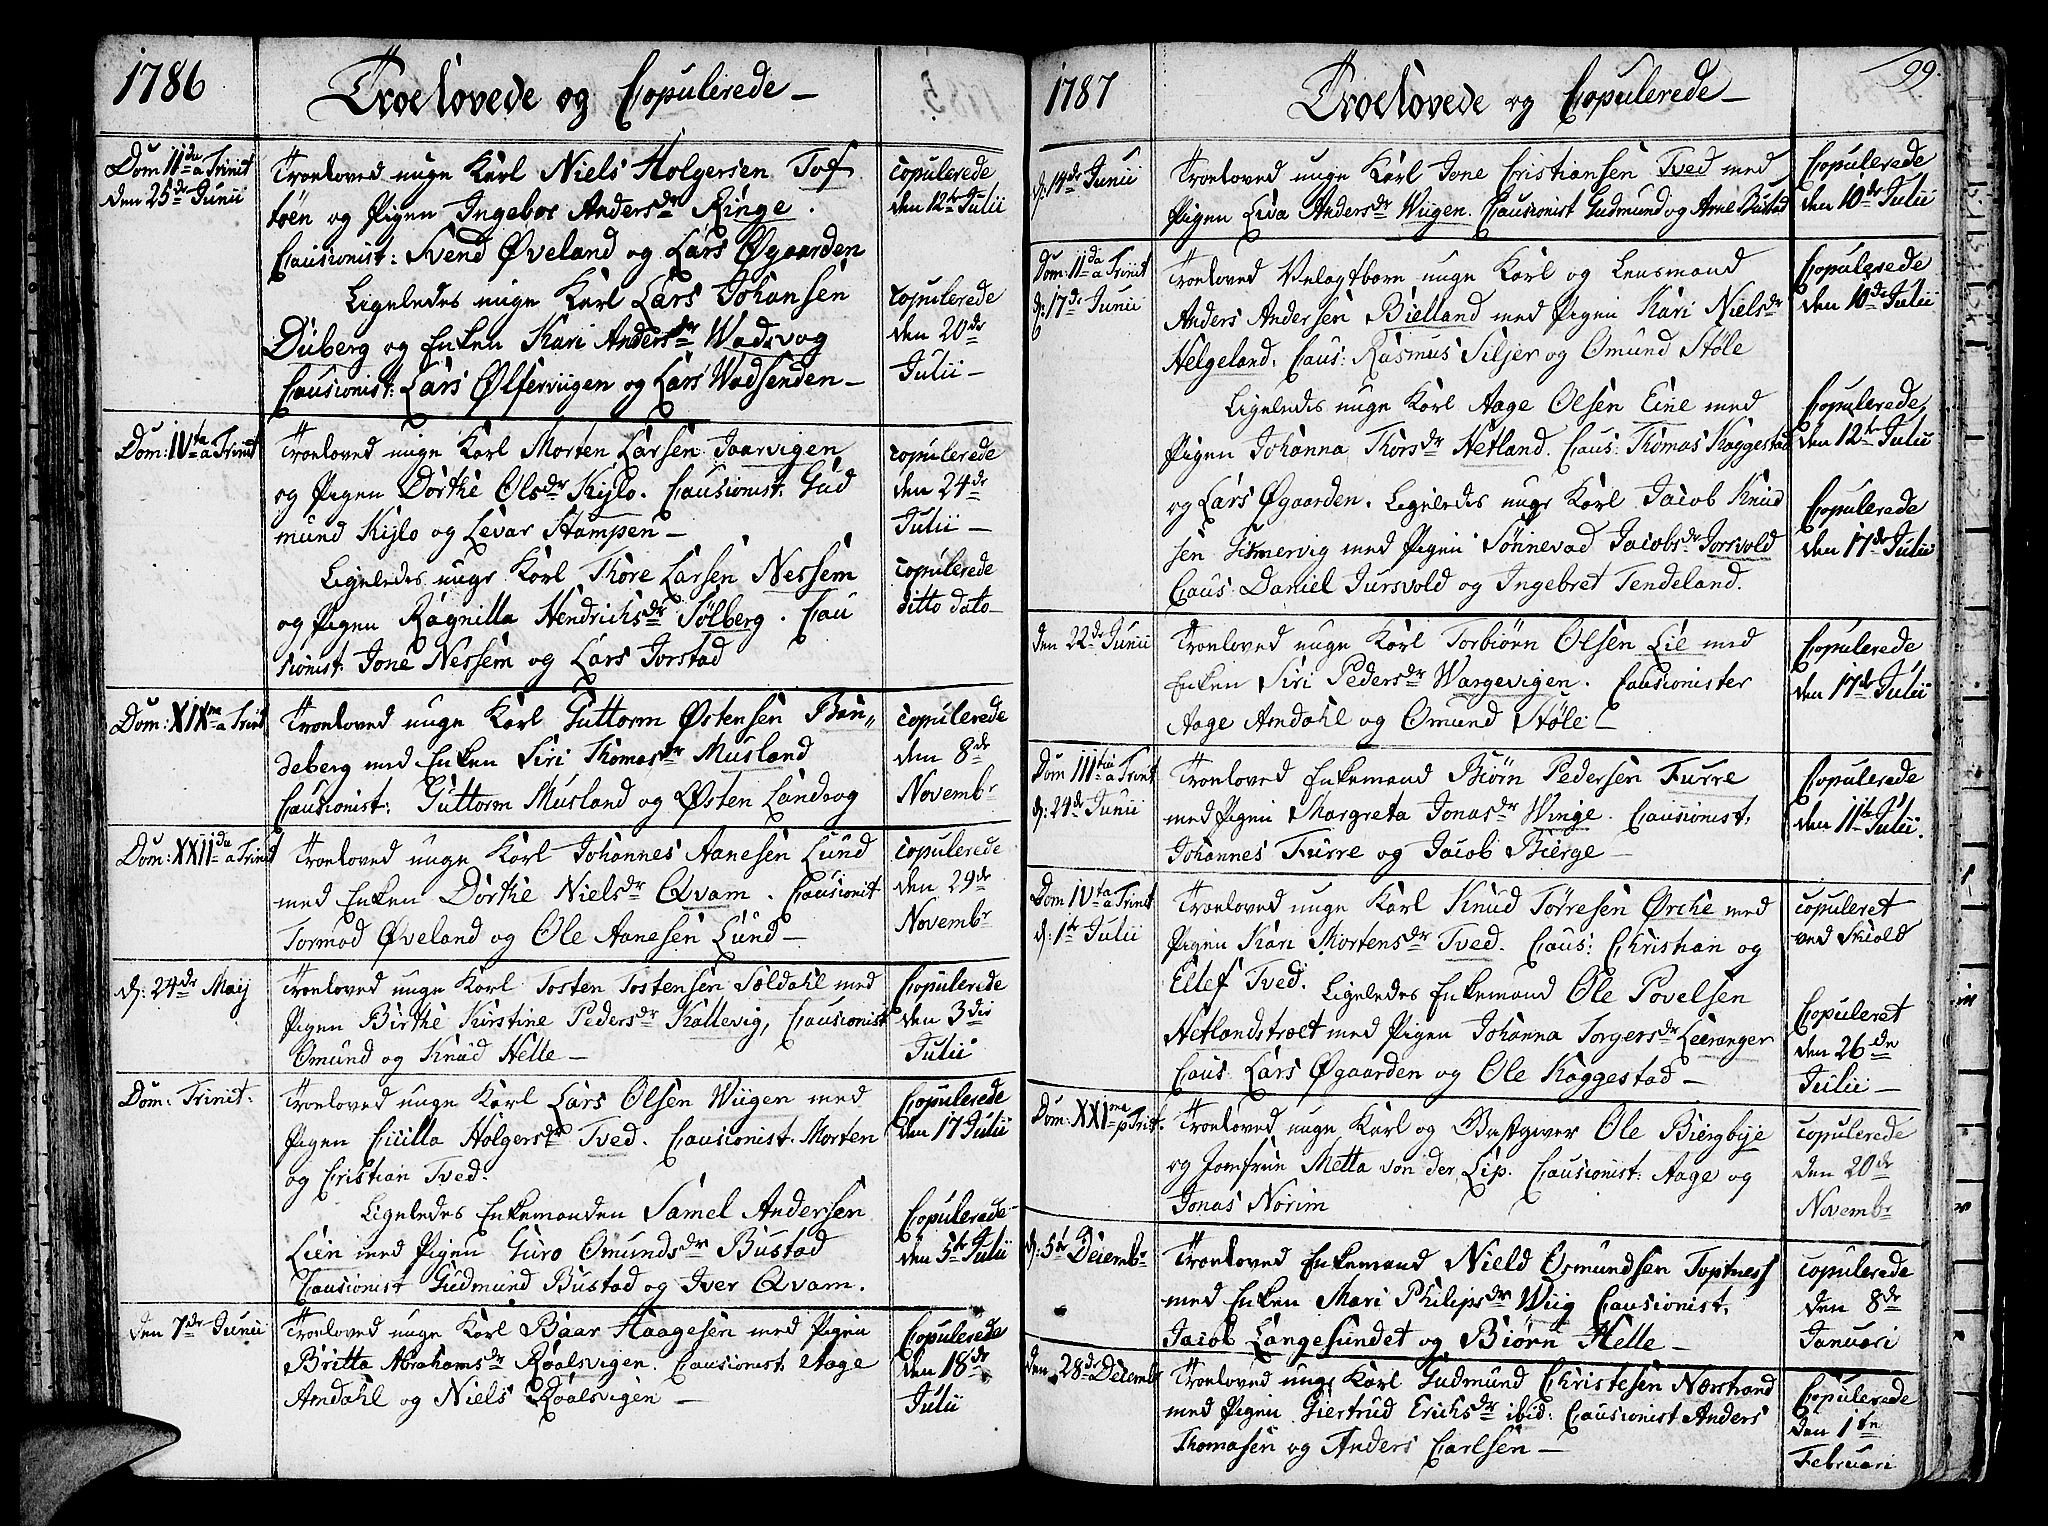 1786
Troelovede og Copulerede –
Dom 11da a Trinit
den 25de Junii
Troeloved unge Karl Niels Holgersen Tof
tøen og Pigen Ingebor Andersdr Ringe.
Causionist: Svend Øveland og Lars Øgaarden
copulerede
den 12te Julii
Ligeledes unge Karl Lars Johansen
Duberg og Enken Kari Andersdr Wadsvog
Causionist: Lars Ølferviigen og Lars Wadsenden –
copulerede
den 20de
Julii –
Dom: IVta a Trinit
Troeloved unge Karl Morten Larsen Jaarvigen
og Pigen Dorthe Olsdr Kijlo. Causionist. Gud
mund Kijlo og Levar Stampen –
copulerede
den 24de
Julii –
Ligeledes unge Karl Thore Larsen Nessem
og Pigen Ragnilla Hendrichsdr Sølberg. Cau
sionist. Jone Nessem og Lars Jorstad
copulerede
ditto dato –
Dom: XIXma a Trinit
Troeloved unge Karl Guttorm Østensen Ban„
deberg med Enken Siri Thomasdr Musland
Causionist: Guttorm Musland og Østen Landvog
copulerede
den 8de
Novembr
Dom: XXIIda a Trinit
Troeloved unge Karl Johannes Aanesen Lund
med Enken Dorthe Nielsdr Qvam. Causionist
Tormod Øveland og Ole Aanesen Lund –
copulerede
den 29de
Novembr
d: 24de Maij
Troeloved unge Karl Tosten Tostensen Søldahl med
Pigen Birthe Kirstine Pedersdr Kallevig, Causionist
Omund og Knud Helle –
Copulerede
den 3die
Julii
Dom: Trinit:
Troeloved unge Karl Lars Olsen Wiigen med
Pigen Cicilla Holgersdr Tved. Causionist. Morten
og Cristian Tved.
Copulerede
den 17 Julii
Ligeledes Enkemanden Samel Andersen
Lien med Pigen Guro Omundsdr Bustad
Causionist Gudmund Bustad og Iver Qvam.
Copulerede
den 5te Julii
den 7de Junii
Troeloved unge Karl Baar Haagesen med Pigen
Britta Abrahamsdr Roalsvigen. Causionist. Aage
Amdahl og Niels Roalsvigen –
Copulerede
den 18de
Julii
1787
Troelovede og Copulerede –
99.
d: 14de Junii
Troeloved unge Karl Jone Cristiansen Tved med
Pigen Lisa Andersdr Wiigen. Causionist Gudmund og Arne Bustad
Copulerede
den 10de Julii
Dom: IIda a Trinit
d: 17de Junii
Troeloved Velagtbare unge Karl og Lensmand
Anders Andersen Bielland med Pigen Kari Nielsdr
Helgeland. Caus: Rasmus Siljer og Omund Støle
Copulerede
den 10de Julii
Ligeledes unge Karl Aage Olsen Eine med
Pigen Johanna Thorsdr Hetland. Caus: Thomas Kaggestad
og Lars Øgaarden. Ligeledes unge Karl Jacob Knud
sen Gismervig med Pigen Sønnevad Jacobsdr Jorsvold
Caus: Daniel Jursvold og Ingebret Tendeland.
Copulerede
den 12te Julii
Copulerede
den 17de Julii
den 22de Junii
Troeloved unge Karl Torbiørn Olsen Lie med
Enken Siri Pedersdr Wargevigen. Causionister
Aage Amdahl og Omund Støle –
Copulerede
den 17de Julii
Dom IIItia a Trinit
d: 24de Junii
Troeloved Enkemand Biørn Pedersen Furre
med Pigen Margreta Jonasdr Winge. Causionist.
Johannes Furre og Jacob Bierge –
Copulerede
den 11te Julii.
Dom IVta a Trinit
d: 1te Julii
Troeloved unge Karl Knud Tørresen Ørche med
Pigen Kari Mortensdr Tved. Caus: Christian og
Ellef Tved. Ligeledes Enkemand Ole Povelsen
Hetlandstroet med Pigen Johanna Torgersdr Leeranger
Caus Lars Øgaarden og Ole Kaggestad –
copuleret
ved Skiold
Copuleret
den 26de
Julii –
Dom: XXIma p Trit.
Troeloved unge Karl og Gastgiver Ole Biergbye
og Jomfrue Metta von der Lip. Causionist: Aage og
Jonas Norim
copulerede
den 20de
Novembr
d: 5te Decembr
Troeloved Enkemand Nield Osmundsen Toptness
med Enken Mari Philipsdr Wiig Causionist.
Jacob Langesundet og Biørn Helle –
copulerede
den 8de
Januari
den 28de Decembr
Troeloved unge Karl Gudmund Christesen Nærstrand
med Pigen Giertrud Erichsdr ibid: Causionist Anders
Thomasen og Anders Carlsen –
Copulerede
den 1te
Februari